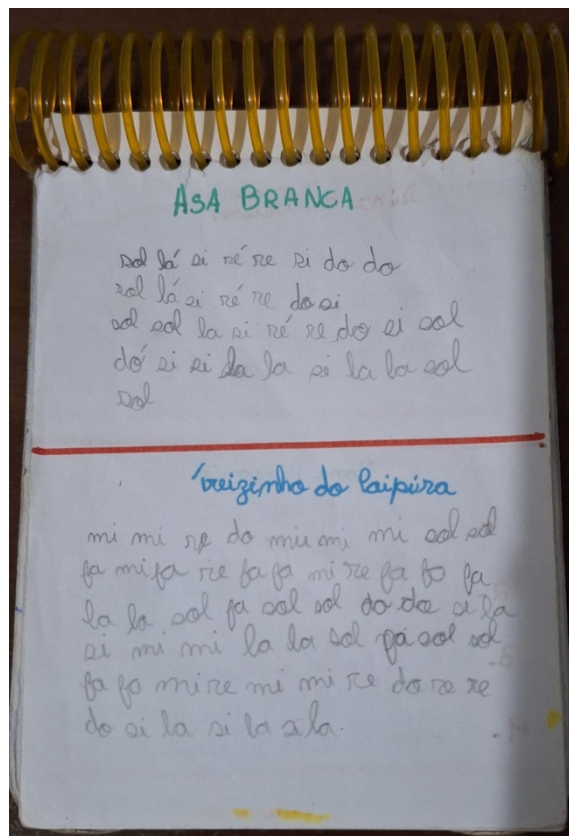 ASA BRANCA
sol lá si ré re si do do
sol lá si ré re do si
sol sol la si ré re do si sol
dó si si la la si la la sol
sol
do Caipira
mi mi re do mi mi mi sol sol
fa mi fa re fa fa mi re fa fa fa
la la sol fa sol sol do do si la
si mi mi la la sol fa sol sol
fa fa mi re mi mi re do re re
do si la si la si la.